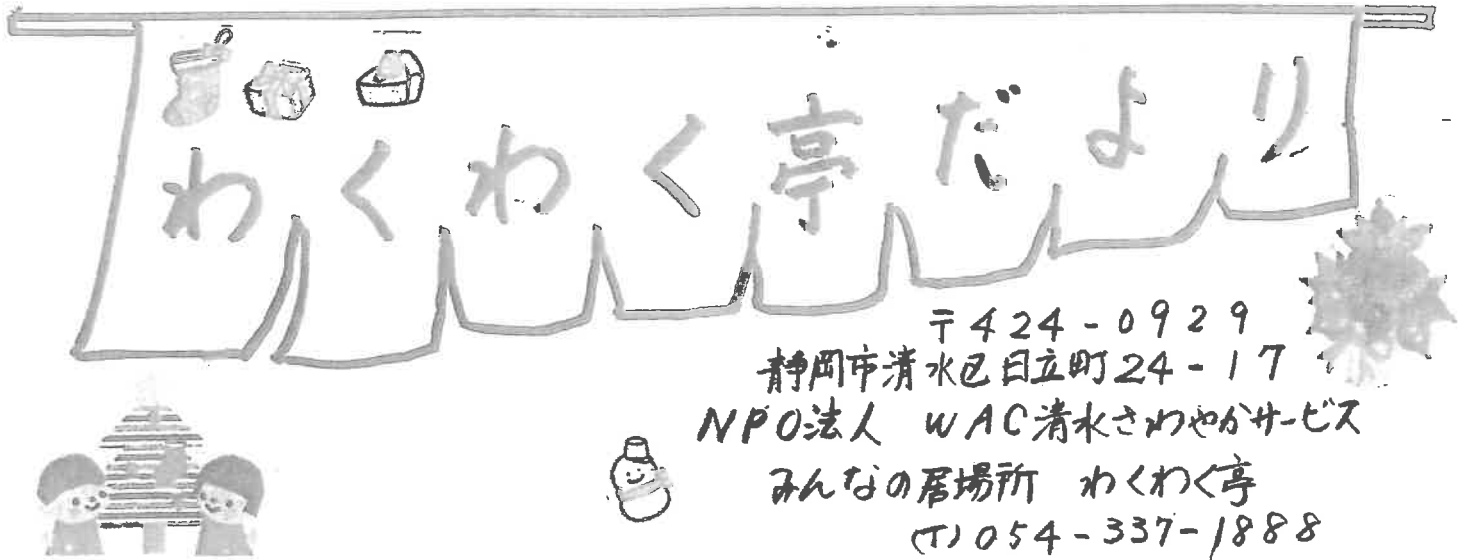 わくわく亭だより
〒424-0929
静岡市清水区日立町24-17
NPO法人 WAC清水さわやかサービス
みんなの居場所 わくわく亭
(T) 054-337-1888